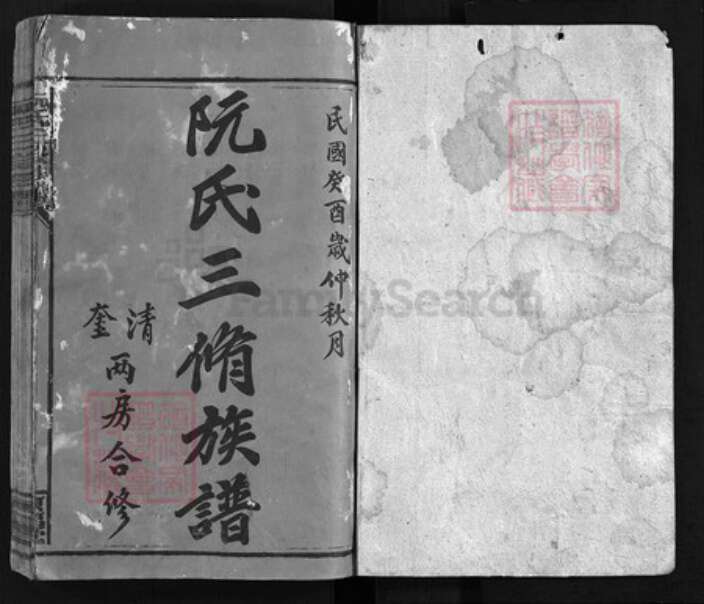 民國癸酉歲仲秋月
阮氏三脩族譜
清奎兩房合修
FamilySearch